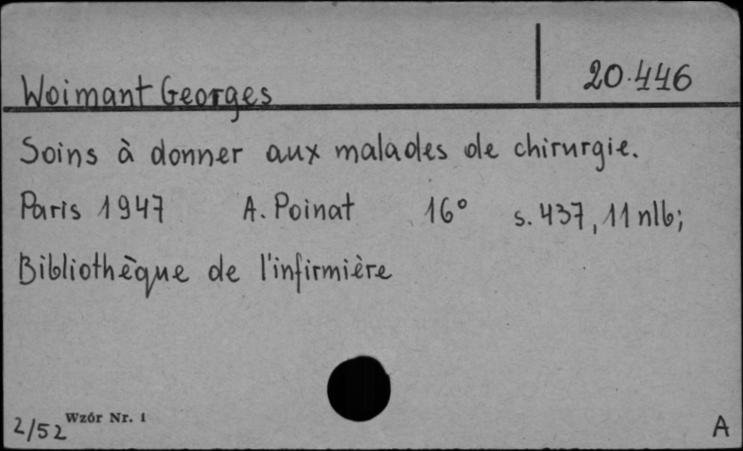 Woimant Georges 20.446
Soins à donner aux malades de chirurgie.
Paris 1947 A. Poinat 16° s. 437, 11 nlb;
Bibliothèque de l'infirmière
2/52 Wzór Nr. 1 A